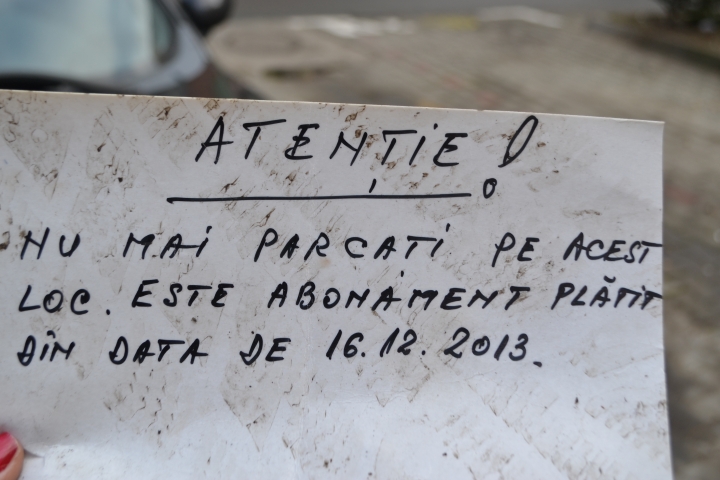 ATENȚIE!
NU MAI PARCATI PE ACEST
LOC. ESTE ABONAMENT PLĂTIT
DIN DATA DE 16.12.2013.